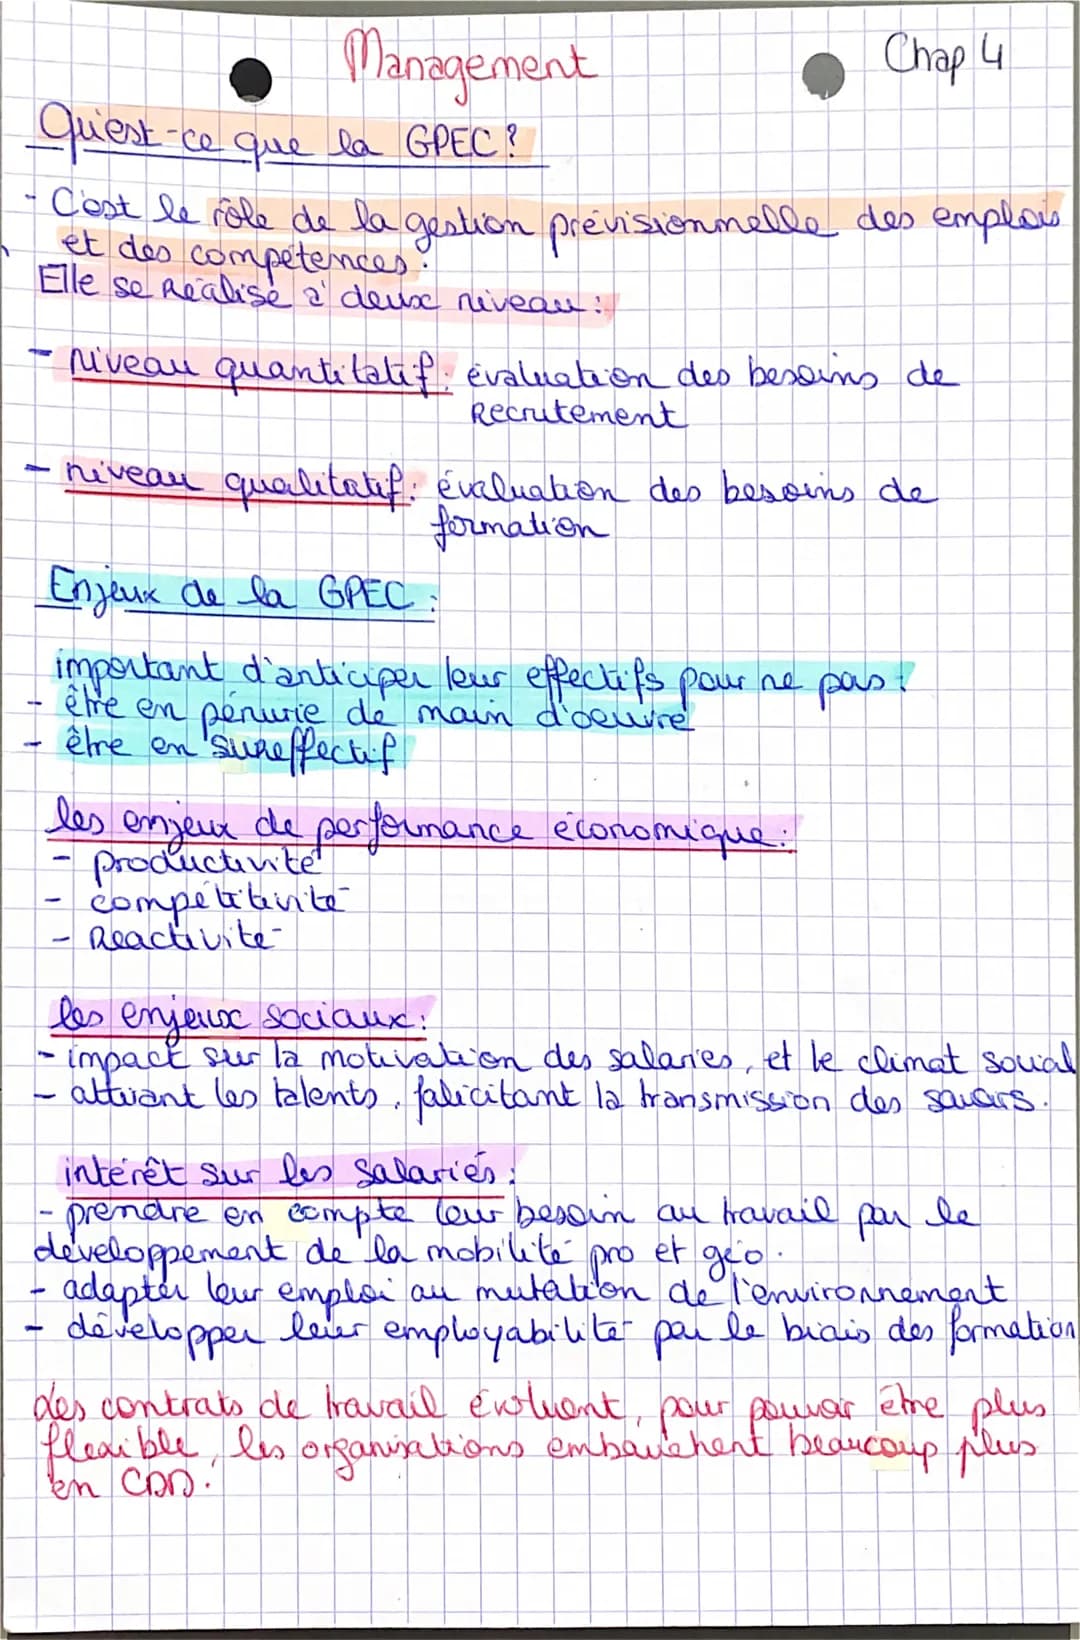 Management
Chap 4
Qu'est-ce que la GPEC?
- C'est le rôle de la gestion prévisionnelle des emplois
et des compétences.
Elle se réalise à deux niveau:
- niveau quantitatif: évaluation des besoins de
recrutement
- niveau qualitatif: évaluation des besoins de
formation
Enjeux de la GPEC:
important d'anticiper leur effectifs pour ne pas:
- être en pénurie de main d'oeuvre
- être en sureffectif
les enjeux de performance économique:
- productivité
- compétitivité
- Réactivité
les enjeux sociaux:
- impact sur la motivation des salariés, et le climat social
- attirant les talents, falicitant la transmission des savoirs.
intérêt sur les salariés:
- prendre en compte leur besoin au travail par le
développement de la mobilité pro et géo.
- adapter leur emploi au mutation de l'environnement
- développer leur employabilité par le biais des formation
des contrats de travail évoluent, pour pouvoir être plus
flexible, les organisations embauchent beaucoup plus
en CDD.